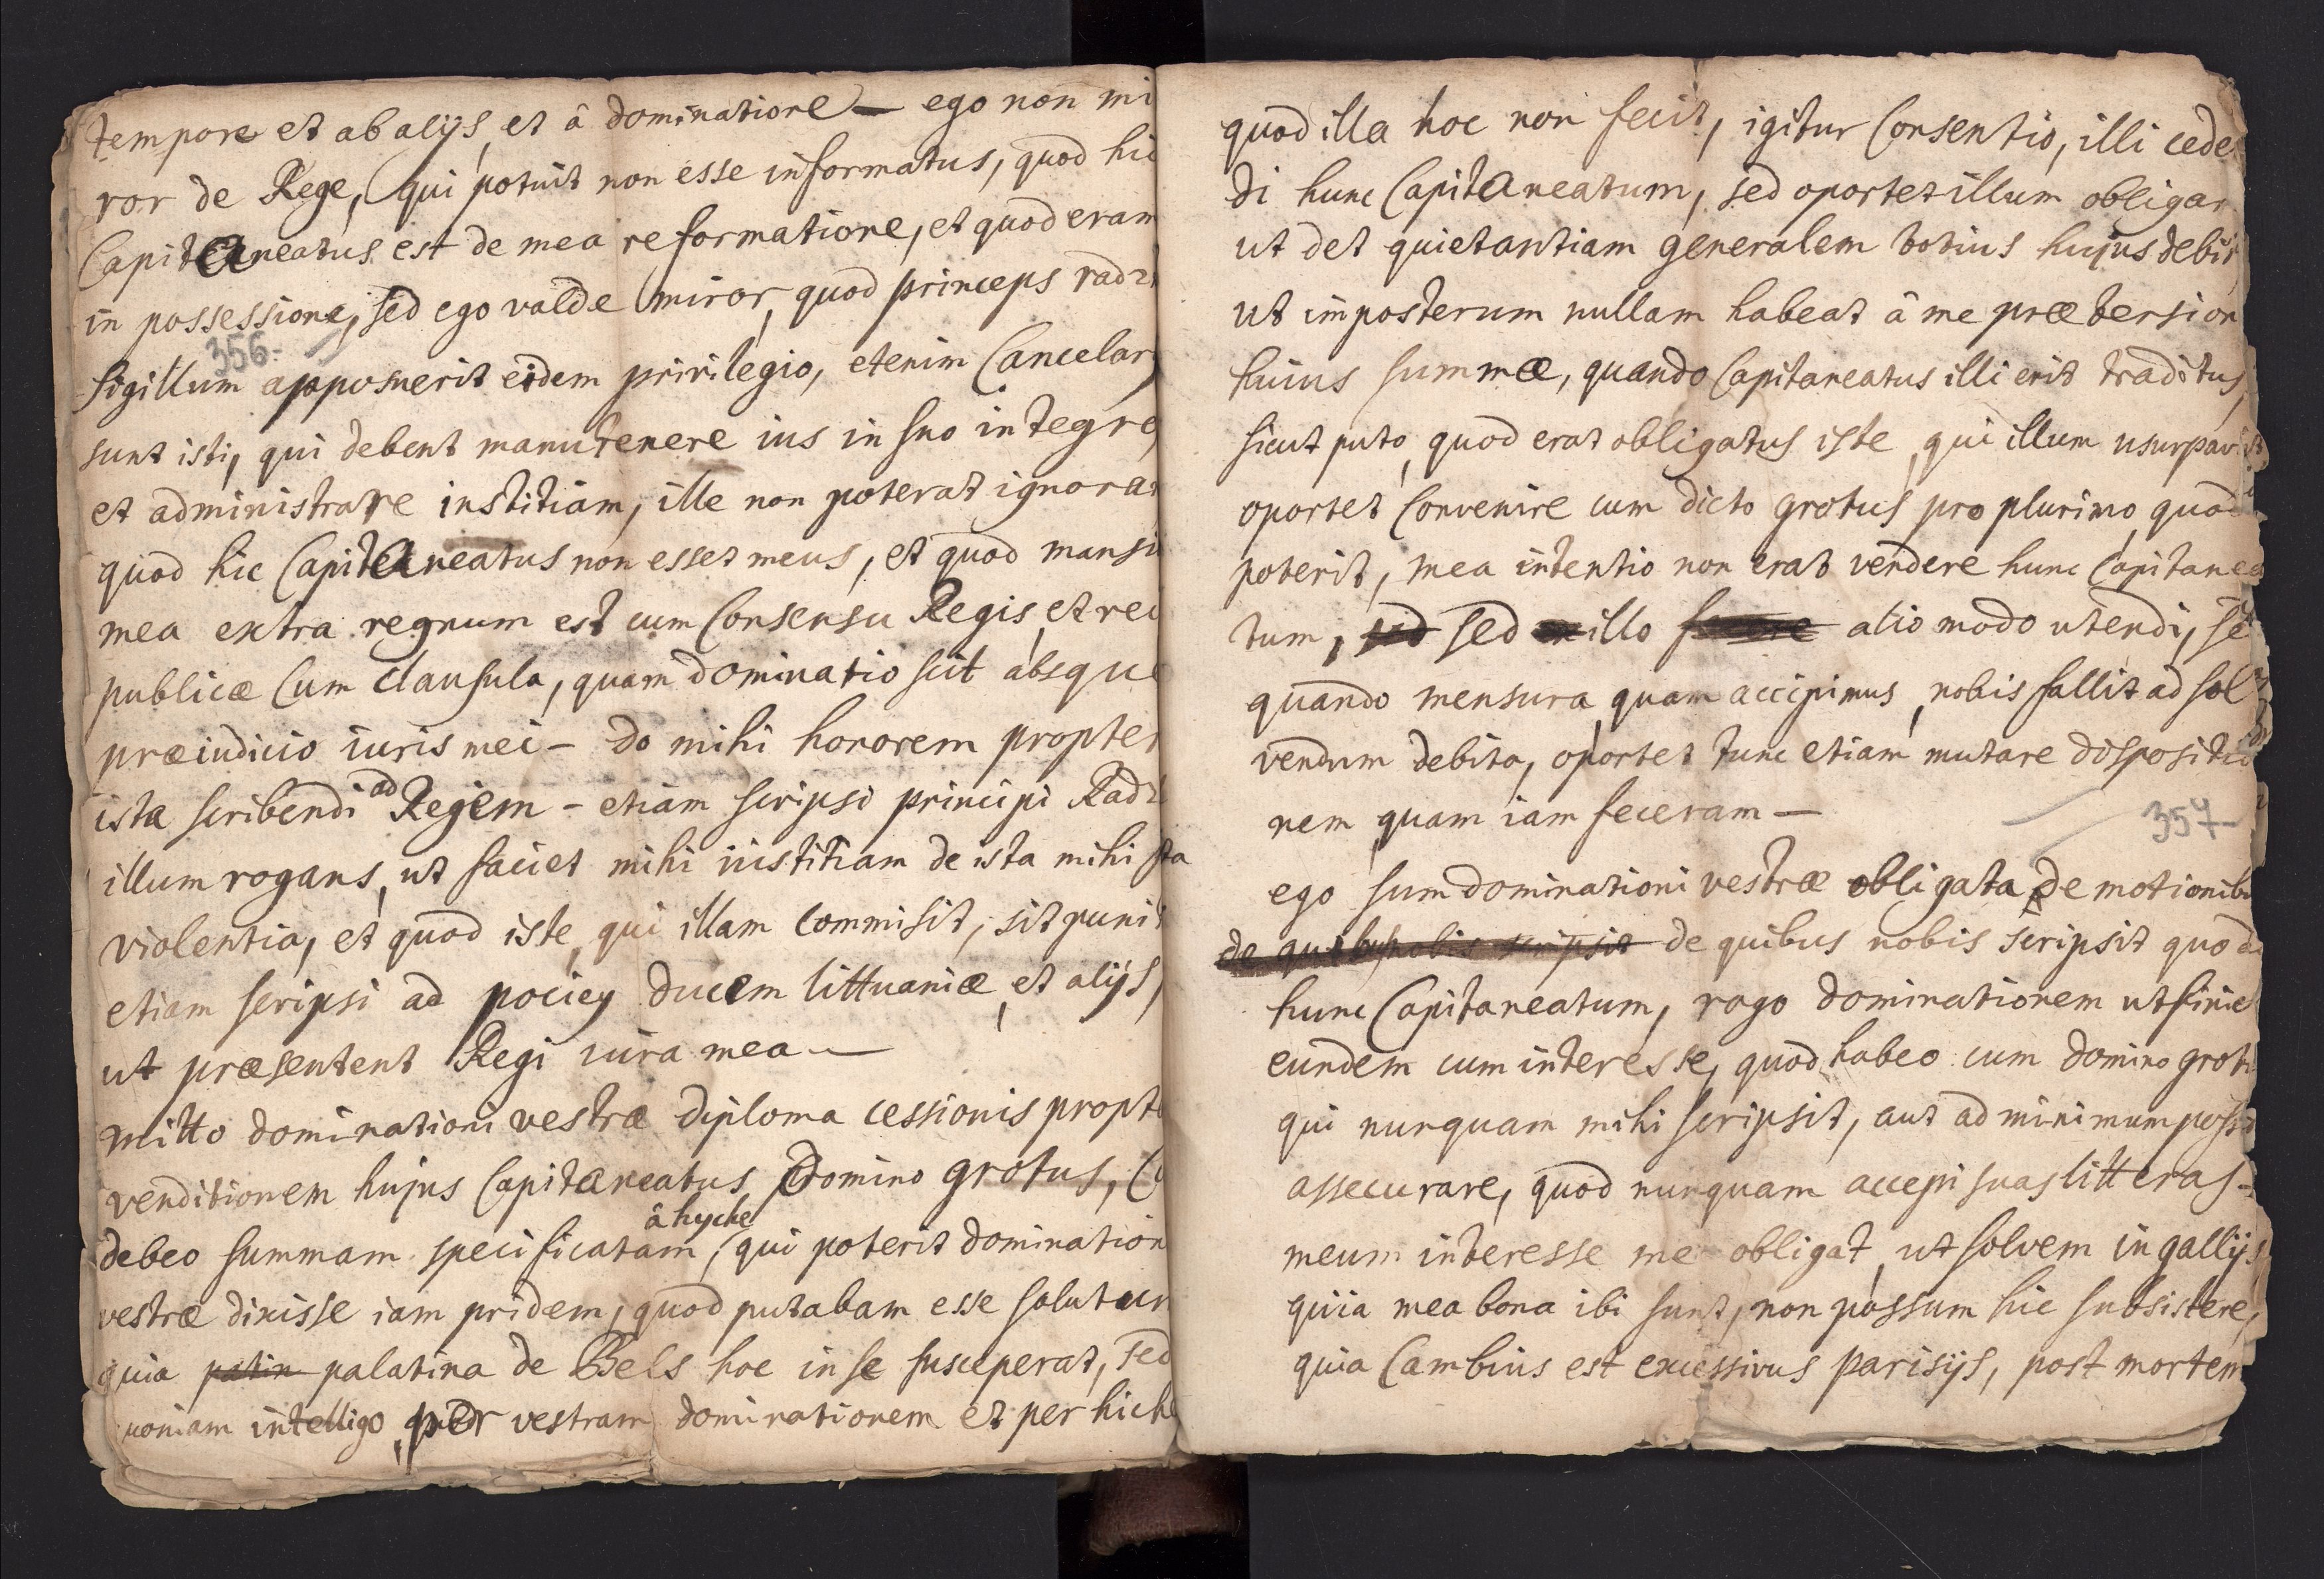 tempore et ab alijs, et â dominatione — ego non mi
ror de Rege, qui potuit non esse informatus, quod hic
Capitaneatus est de mea reformatione, et quod eram
in possessione, sed ego valde miror, quod princeps radzi
356-
sigillum apposuerit eidem privilegio, etenim Cancelary
sunt isti, qui debent manutenere ius in suo integro,
et administrare iustitiam, ille non poterat ignorar
quod hic Capitaneatus non esset meus, et quod mansi
mea extra regnum est cum Consensu Regis, et rei
publicæ Cum Clausula, quam dominatio scit absque
præiudicio iuris mei – do mihi honorem propter
ista scribendi ad Regem – etiam scripsi principi Radzi
illum rogans, ut faciet mihi iustitiam de ista mihi fta
violentia, et quod iste, qui illam Commisit, sit punit
etiam scripsi ad pociey ducem littuaniæ, et alijs,
ut præsentent Regi iura mea —
mitto dominationi vestræ diploma cessionis propte
venditionem hujus Capitaneatus, Domino grotus, C
debeo summam specificatam, qui poterit domination
â hyche
vestræ dixisse iam pridem, quod putabam esse solutum
quia patin palatina de Bels hoc in se susceperat, sed
uoniam intelligo, per vestram dominationem et per hiche
quod illa hoc non fecit, igitur Consentio, illi cede
di hunc Capitaneatum, sed oportet illum obligar
ut det quietantiam generalem totius hujus debit
ut imposterum nullam habeat â me prætension
huius summæ, quando Capitaneatus illi erit traditus,
sicut puto, quod erat obligatus iste, qui illum usurpavit
oportet Convenire cum dicto grotus pro plurimo, quod
poterit, mea intentio non erat vendere hunc Capitanea
tum, sed illo alio modo utendi, se
quando mensura, quam accipimus, nobis fallit ad sol
vendum debita, oportet tunc etiam mutare dispositio
nem, quam iam feceram —
357-
ego sum dominationi vestræ obligata de motionibu
de quibus nobis scripsit de quibus nobis scripsit quod
hunc Capitaneatum, rogo dominationem ut finie
eundem cum interesse, quod habeo cum domino grotu
qui nunquam mihi scripsit, aut ad minimum possu
assecurare, quod nunquam accepi suas litteras –
meum interesse me obligat, ut solvem in gallijs
quia mea bona ibi sunt, non possum hic subsistere,
quia Cambius est excessivus parisijs, post mortem